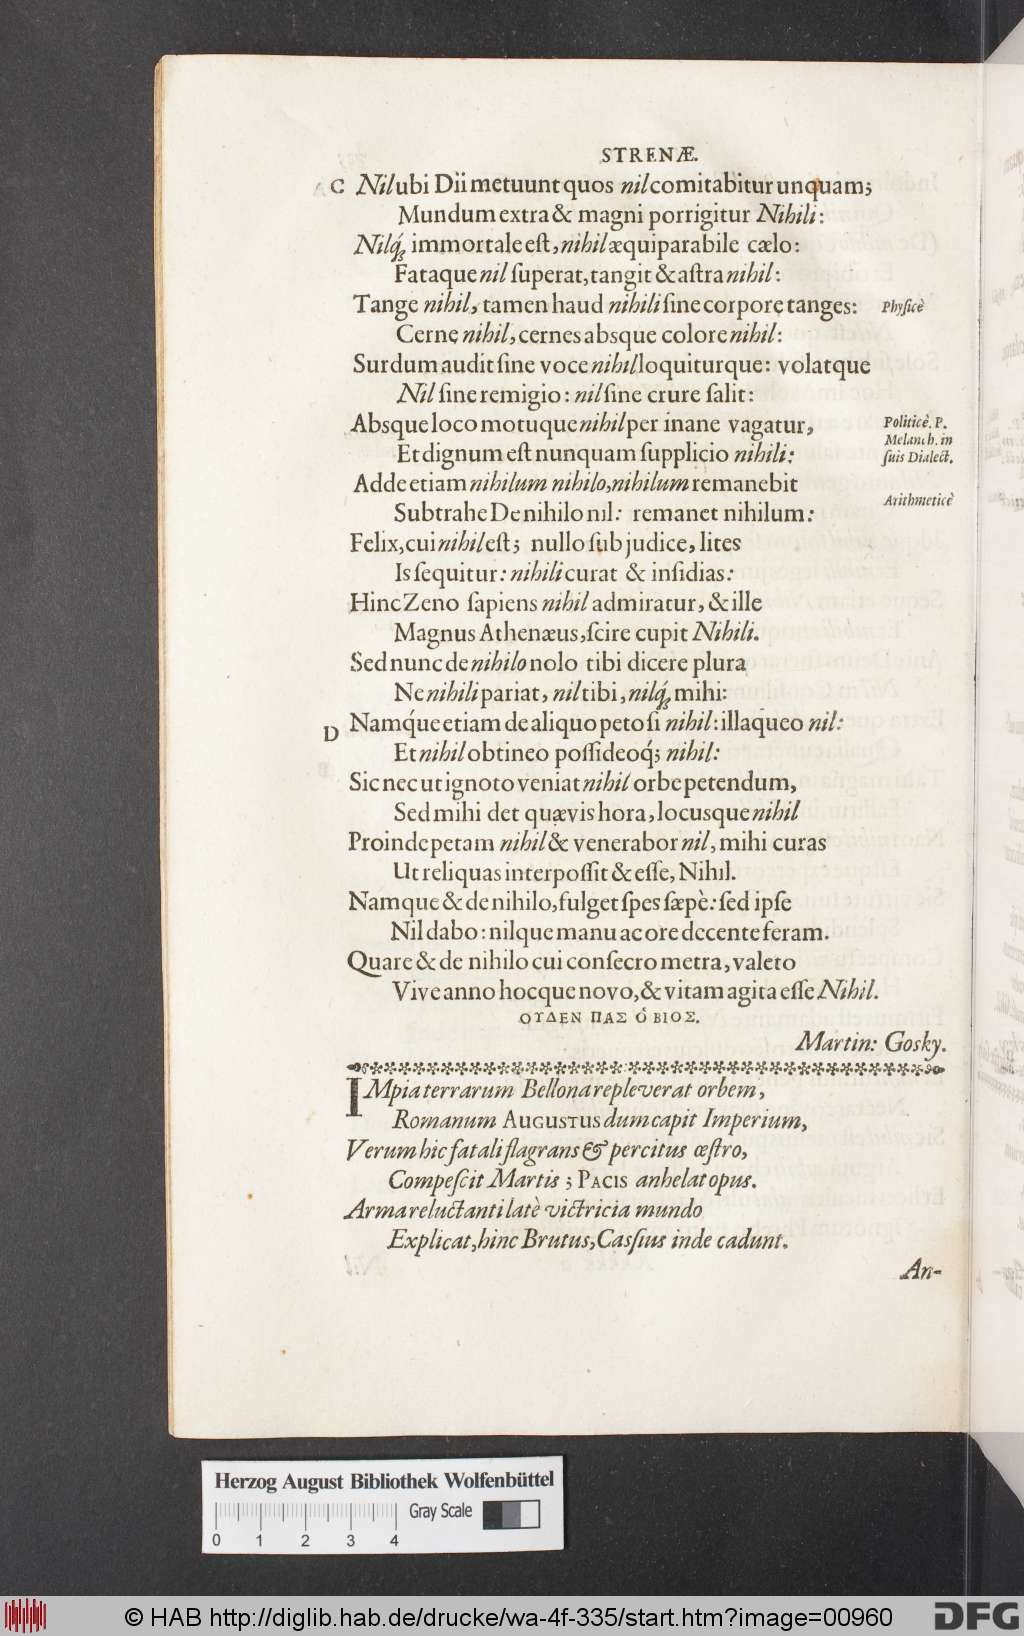 STRENÆ.
C Nil ubi Dii metuunt quos nil comitabitur unquam;
Mundum extra & magni porrigitur Nihili:
Nilq́; immortale eſt, nihil æquiparabile cælo:
Fataque nil ſuperat, tangit & aſtra nihil:
Tange nihil, tamen haud nihili ſine corpore tanges: Phyſicè
Cerne nihil, cernes absque colore nihil:
Surdum audit ſine voce nihil loquiturque: volatque
Nil ſine remigio: nil ſine crure ſalit:
Absque loco motuque nihil per inane vagatur, Politicè. P.
Melanch. in
Et dignum eſt nunquam ſupplicio nihili: ſuis Dialect.
Adde etiam nihilum nihilo, nihilum remanebit Arithmeticè
Subtrahe De nihilo nil: remanet nihilum:
Felix, cui nihil eſt; nullo ſub judice, lites
Is ſequitur: nihili curat & inſidias:
Hinc Zeno ſapiens nihil admiratur, & ille
Magnus Athenæus, ſcire cupit Nihili.
Sed nunc de nihilo nolo tibi dicere plura
Ne nihili pariat, nil tibi, nilq́; mihi:
D Namq́ue etiam de aliquo peto ſi nihil: illaqueo nil:
Et nihil obtineo poſſideoq́; nihil:
Sic nec ut ignoto veniat nihil orbe petendum,
Sed mihi det quævis hora, locusque nihil
Proinde petam nihil & venerabor nil, mihi curas
Ut reliquas interpoſſit & eſſe, Nihil.
Namque & de nihilo, fulget ſpes ſæpè: ſed ipſe
Nil dabo: nilque manu ac ore decente feram.
Quare & de nihilo cui conſecro metra, valeto
Vive anno hocque novo, & vitam agita eſſe Nihil.
ΟΥΔΕΝ ΠΑΣ Ὁ ΒΙΟΣ.
Martin: Gosky.
IMpia terrarum Bellona repleverat orbem,
Romanum AUGUSTUS dum capit Imperium,
Verum hic fatali flagrans & percitus œſtro,
Compeſcit Martis; PACIS anhelat opus.
Arma reluctanti latè victricia mundo
Explicat, hinc Brutus, Caſſius inde cadunt.
An-
Herzog August Bibliothek Wolfenbüttel
Gray Scale
0 1 2 3 4
© HAB http://diglib.hab.de/drucke/wa-4f-335/start.htm?image=00960
DFG